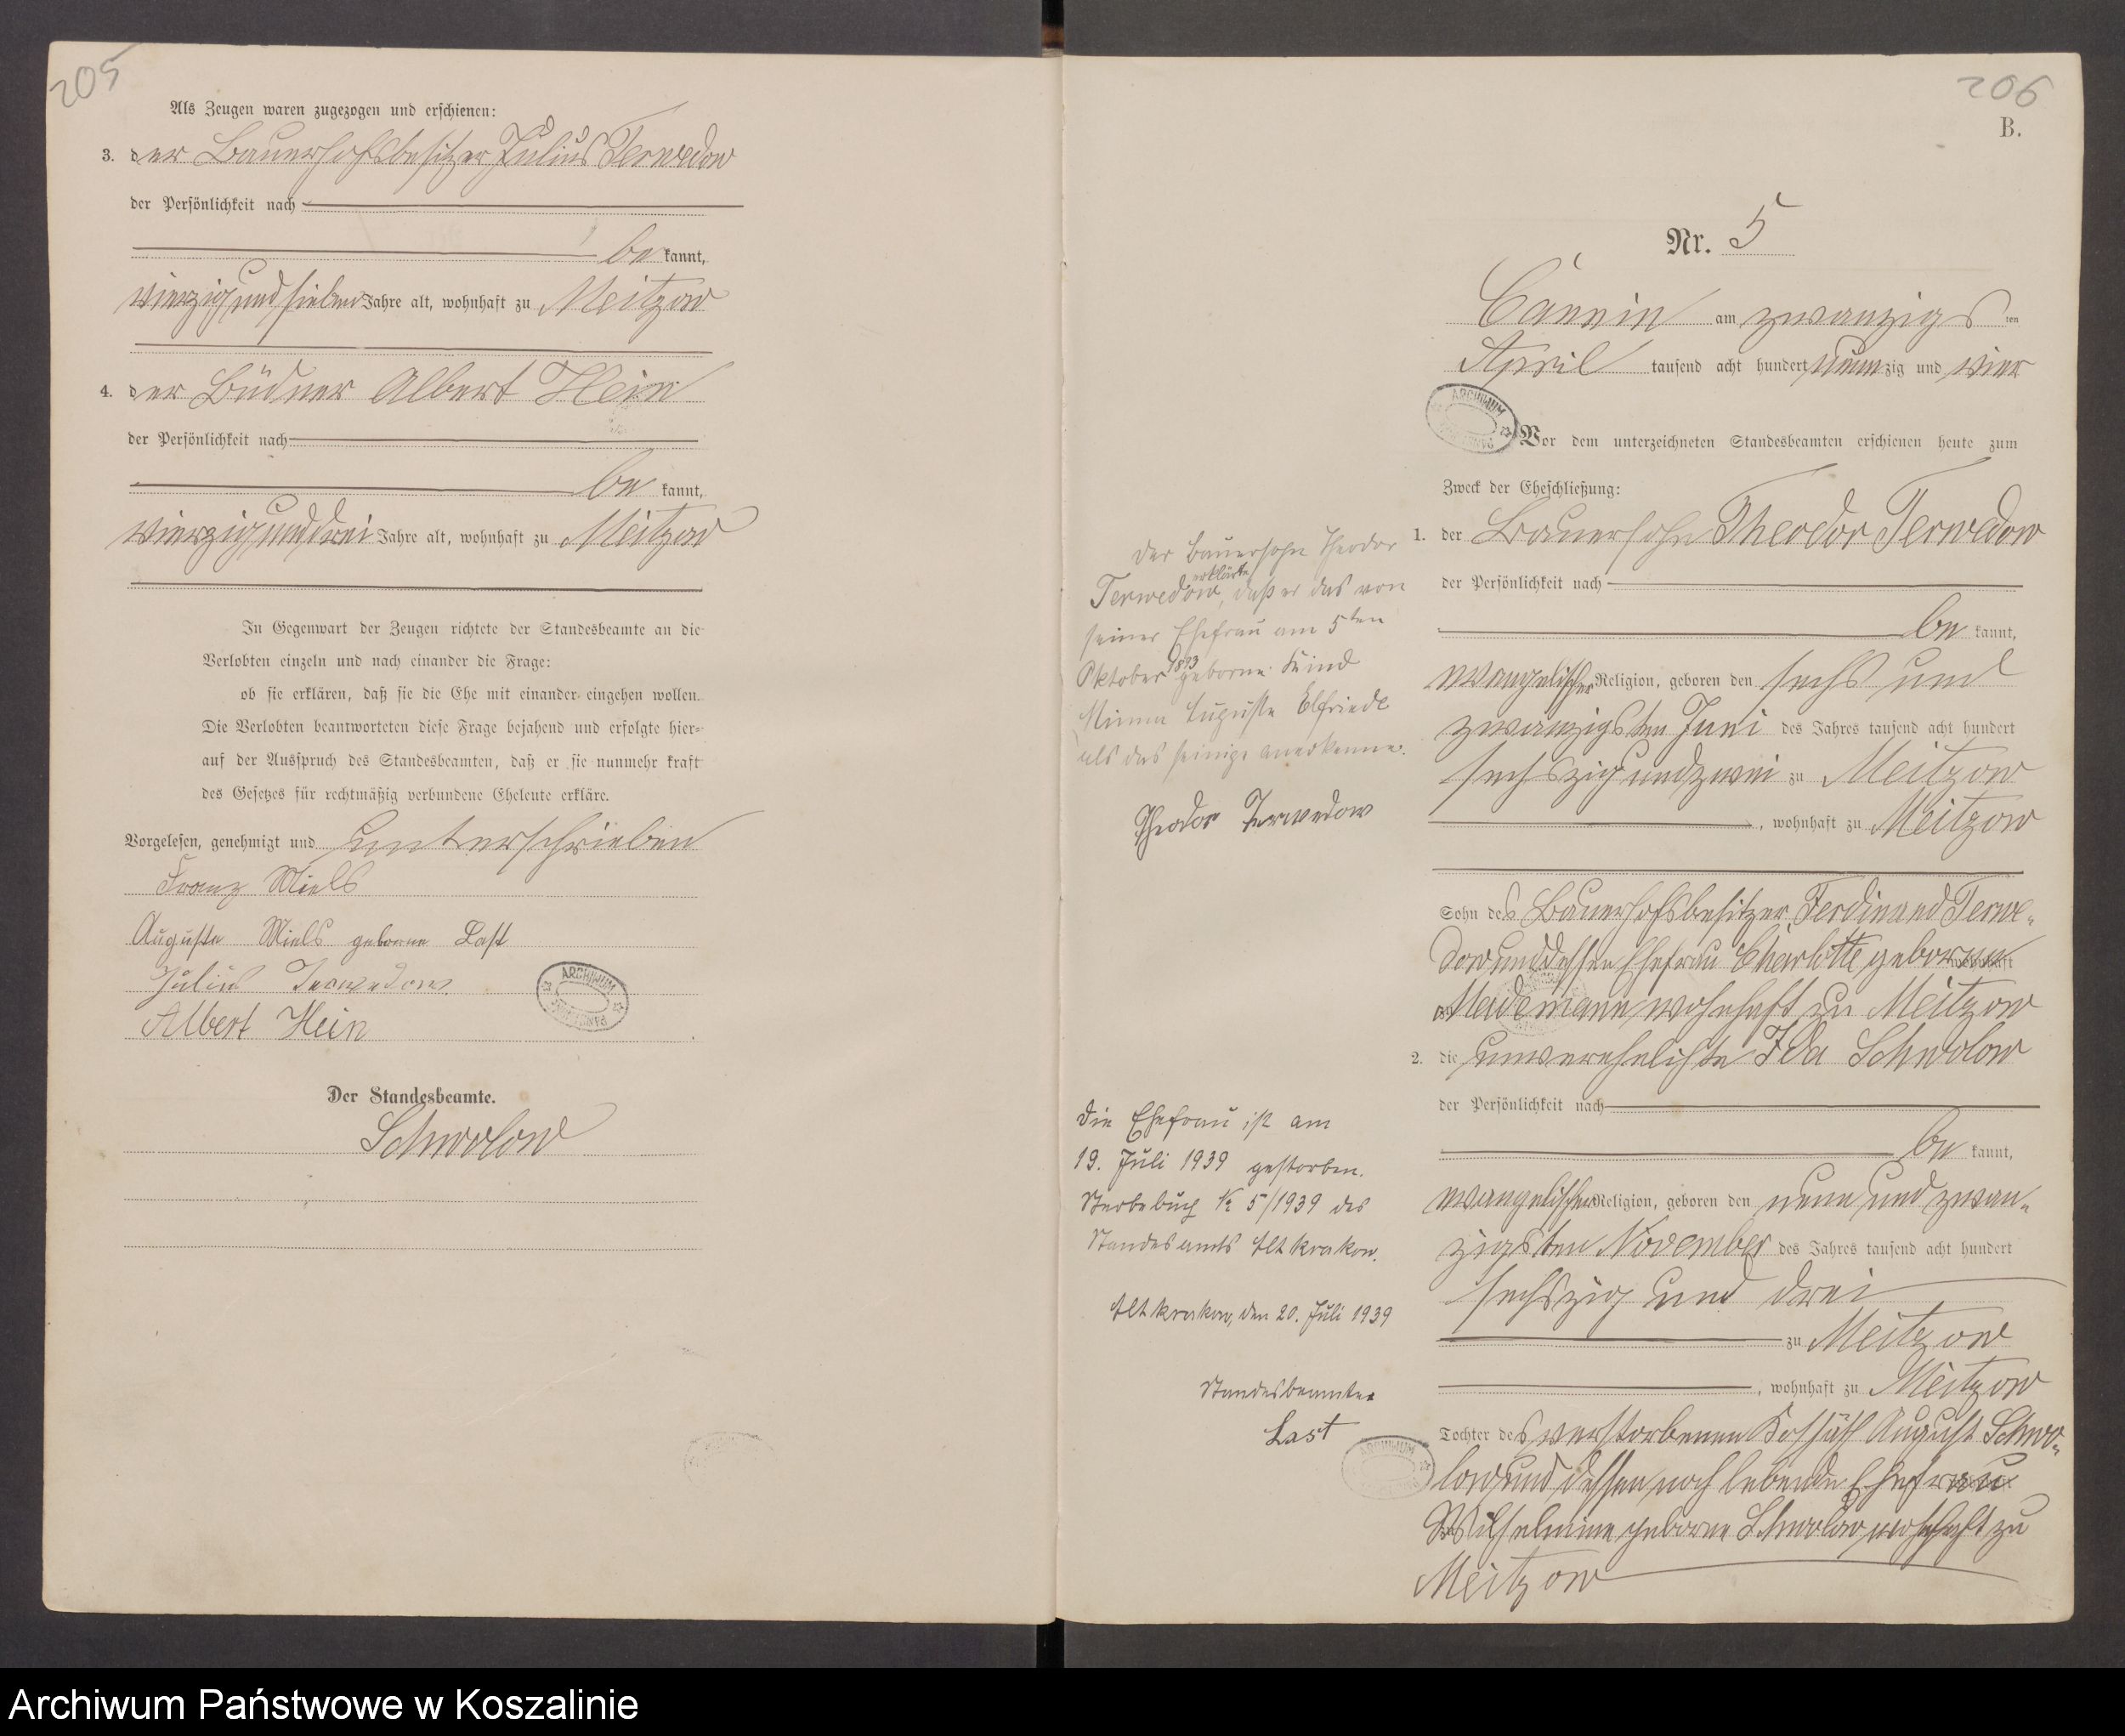 205
Als Zeugen waren zugezogen und erschienen:
3. der Bauerhofsbesitzer Julius Terwedow
der Persönlichkeit nach
be kannt,
vierzig und sieben Jahre alt, wohnhaft zu Meitzow
4. der Büdner Albert Hein
der Persönlichkeit nach
be kannt,
vierzig und drei Jahre alt, wohnhaft zu Meitzow
In Gegenwart der Zeugen richtete der Standesbeamte an die
Verlobten einzeln und nach einander die Frage:
ob sie erklären, daß sie die Ehe mit einander eingehen wollen.
Die Verlobten beantworteten diese Frage bejahend und erfolgte hier-
auf der Ausspruch des Standesbeamten, daß er sie nunmehr kraft
des Gesetzes für rechtmäßig verbundene Eheleute erkläre.
Vorgelesen, genehmigt und unterschrieben
Franz Miels
Auguste Miels geborne Last
Julius Terwedow
Albert Hein
ARCHIWUM
Der Standesbeamte.
Schwolow
206
B.
Nr. 5
Cannin am zwanzigsten
April tausend acht hundert neunzig und vier
ARCHIWUM
Vor dem unterzeichneten Standesbeamten erschienen heute zum
Zweck der Eheschließung:
1. der Bauersohn Theodor Terwedow
der Persönlichkeit nach
be kannt,
evangelischer Religion, geboren den sechs und
zwanzigsten Juni des Jahres tausend acht hundert
sechszig und zwei zu Meitzow
, wohnhaft zu Meitzow
Sohn des Bauerhofsbesitzer Ferdinand Terwe-
dow und dessen Ehefrau Charlotte geborne
Mademann wohnhaft zu Meitzow
2. die unverehelichte Ida Schwolow
der Persönlichkeit nach
be kannt,
evangelischer Religion, geboren den neun und zwan-
zigsten November des Jahres tausend acht hundert
sechszig und drei
zu Meitzow
, wohnhaft zu Meitzow
Tochter des verstorbenen Kossäth August Schwo-
low und dessen noch lebende Ehefrau
Wilhelmine geborne Schwolow wohnhaft zu
Meitzow
Der Bauersohn Theodor
Terwedow erklärte, daß er das von
seiner Ehefrau am 5ten
Oktober 1893 geborne Kind
Minna Auguste Elfriede
als das seinige anerkenne.
Theodor Terwedow
Die Ehefrau ist am
19. Juli 1939 gestorben.
Sterbebuch № 5/1939 des
Standesamts Altkrakow.
Altkrakow, den 20. Juli 1939
Standesbeamter
Last
ARCHIWUM
Archiwum Państwowe w Koszalinie